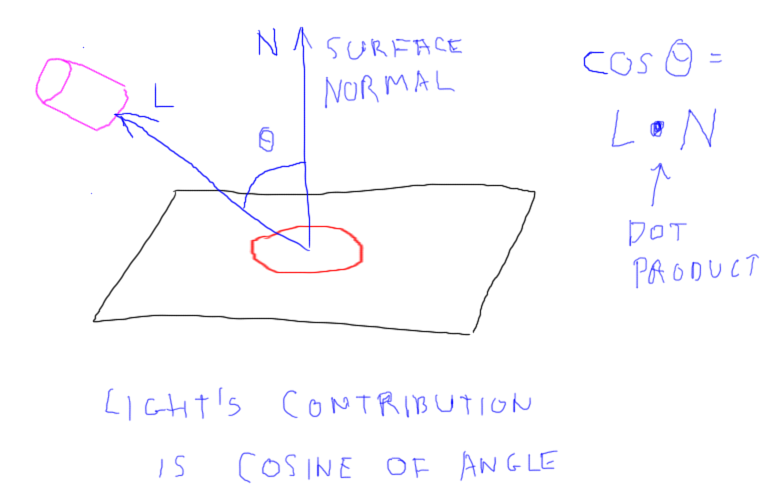 N SURFACE
NORMAL
L
θ
COS θ =
L • N
DOT
PRODUCT
LIGHT'S CONTRIBUTION
IS COSINE OF ANGLE